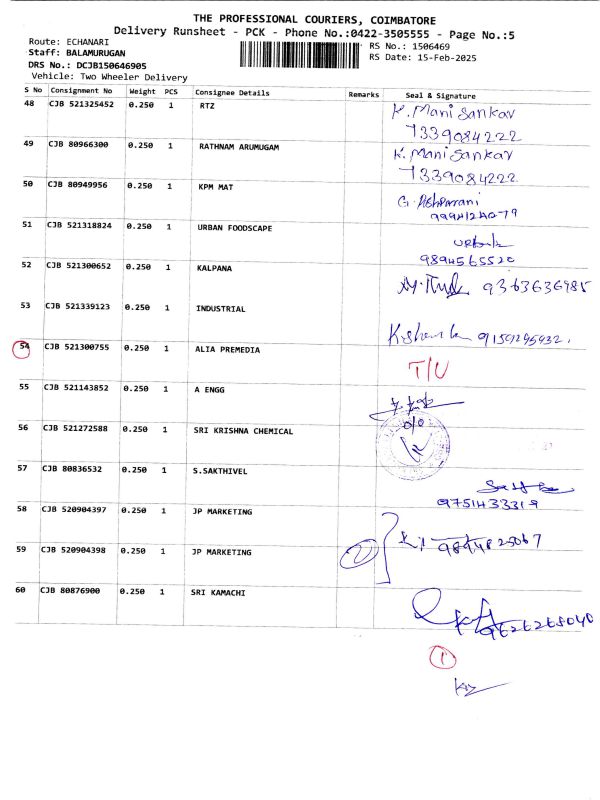 THE PROFESSIONAL COURIERS, COIMBATORE
Delivery Runsheet - PCK - Phone No.:0422-3505555 - Page No.:5
Route: ECHANARI
RS No.: 1506469
Staff: BALAMURUGAN
RS Date: 15-Feb-2025
DRS No.: DCJB150646905
Vehicle: Two Wheeler Delivery
S No Consignment No Weight PCS Consignee Details Remarks Seal & Signature
48 CJB 521325452 0.250 1 RTZ K. Mani Sankar
7339084222
49 CJB 80966300 0.250 1 RATHNAM ARUMUGAM K. Mani Sankar
7339084222
50 CJB 80949956 0.250 1 KPM MAT G.
51 CJB 521318824 0.250 1 URBAN FOODSCAPE
9894565520
52 CJB 521300652 0.250 1 KALPANA 9363636985
53 CJB 521339123 0.250 1 INDUSTRIAL
54 CJB 521300755 0.250 1 ALIA PREMEDIA T/U
55 CJB 521143852 0.250 1 A ENGG
56 CJB 521272588 0.250 1 SRI KRISHNA CHEMICAL
57 CJB 80836532 0.250 1 S.SAKTHIVEL
9751433319
58 CJB 520904397 0.250 1 JP MARKETING
59 CJB 520904398 0.250 1 JP MARKETING 2
60 CJB 80876900 0.250 1 SRI KAMACHI
9626268040
1